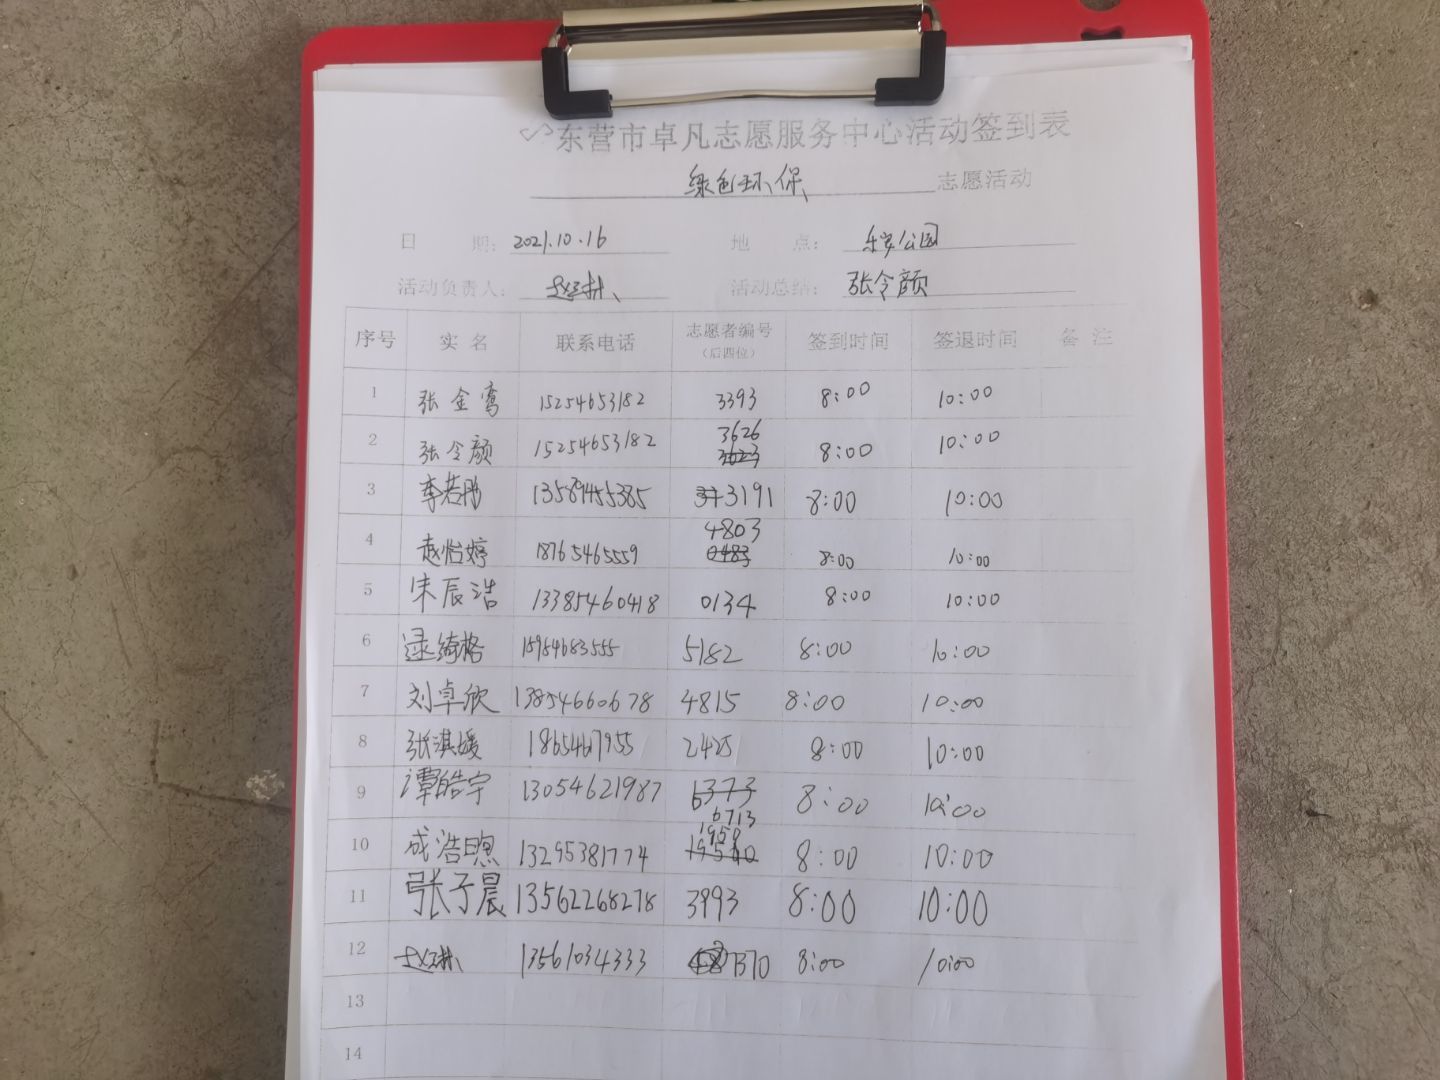 东营市卓凡志愿服务中心活动签到表
绿色环保 志愿活动
日 期: 2021.10.16 地 点: 乐安公园
活动负责人: 活动总结: 张令颜
序号 实名 联系电话 志愿者编号(后四位) 签到时间 签退时间 备注
1 张金鸾 15254653182 3393 8:00 10:00
2 张令颜 15254653182 3626 8:00 10:00
3 李若彤 13589455385 3191 8:00 10:00
4 赵怡婷 18765465559 4803 8:00 10:00
5 宋辰浩 13385460418 0134 8:00 10:00
6 逯绮格 15954683555 5182 8:00 10:00
7 刘卓欣 13854660678 4815 8:00 10:00
8 张淇媛 2425 8:00 10:00
9 谭皓宇 13054621987 6713 8:00 10:00
10 成浩 13295381774 1959 8:00 10:00
11 张予晨 13562268278 3993 8:00 10:00
12 13561034333 1370 8:00 10:00
13
14